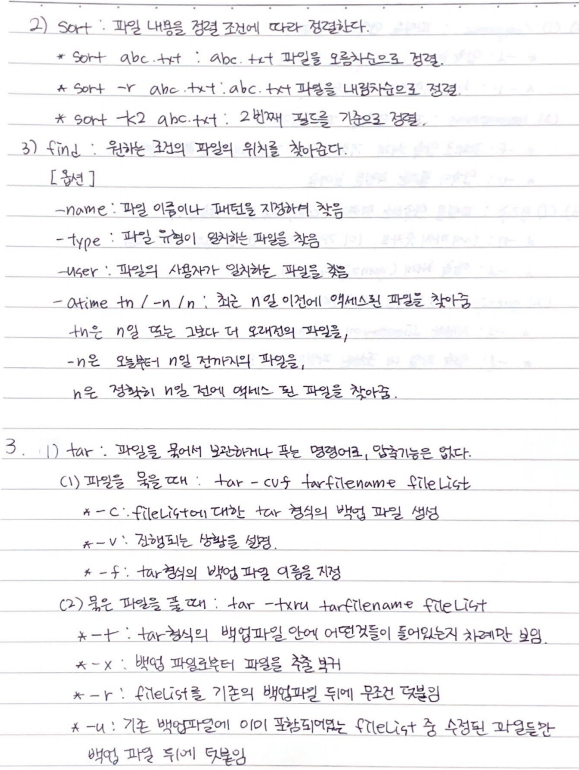 2) sort : 파일 내용을 정렬 조건에 따라 정렬한다.
* sort abc.txt : abc.txt 파일을 오름차순으로 정렬.
* sort -r abc.txt : abc.txt 파일을 내림차순으로 정렬.
* sort -k2 abc.txt : 2번째 필드를 기준으로 정렬.
3) find : 원하는 조건의 파일의 위치를 찾아준다.
[옵션]
-name : 파일 이름이나 패턴을 지정하여 찾음
-type : 파일 유형이 일치하는 파일을 찾음
-user : 파일의 사용자가 일치하는 파일을 찾음
-atime +n / -n / n : 최근 n일 이전에 액세스된 파일을 찾아줌
+n은 n일 또는 그보다 더 오래전의 파일을,
-n은 오늘부터 n일 전까지의 파일을,
n은 정확히 n일 전에 액세스 된 파일을 찾아줌.
3. 1) tar : 파일을 묶어서 보관하거나 푸는 명령어로, 압축기능은 없다.
(1) 파일을 묶을 때 : tar -cvf tarfilename fileList
* -c : fileList에 대한 tar 형식의 백업 파일 생성
* -v : 진행되는 상황을 설명.
* -f : tar형식의 백업 파일 이름을 지정
(2) 묶은 파일을 풀 때 : tar -txru tarfilename fileList
* -t : tar형식의 백업파일 안에 어떤것들이 들어있는지 차례만 보임.
* -x : 백업 파일로부터 파일을 추출 복귀
* -r : fileList를 기존의 백업파일 뒤에 무조건 덧붙임
* -u : 기존 백업파일에 이미 포함되어있는 fileList 중 수정된 파일들만
백업 파일 뒤에 덧붙임